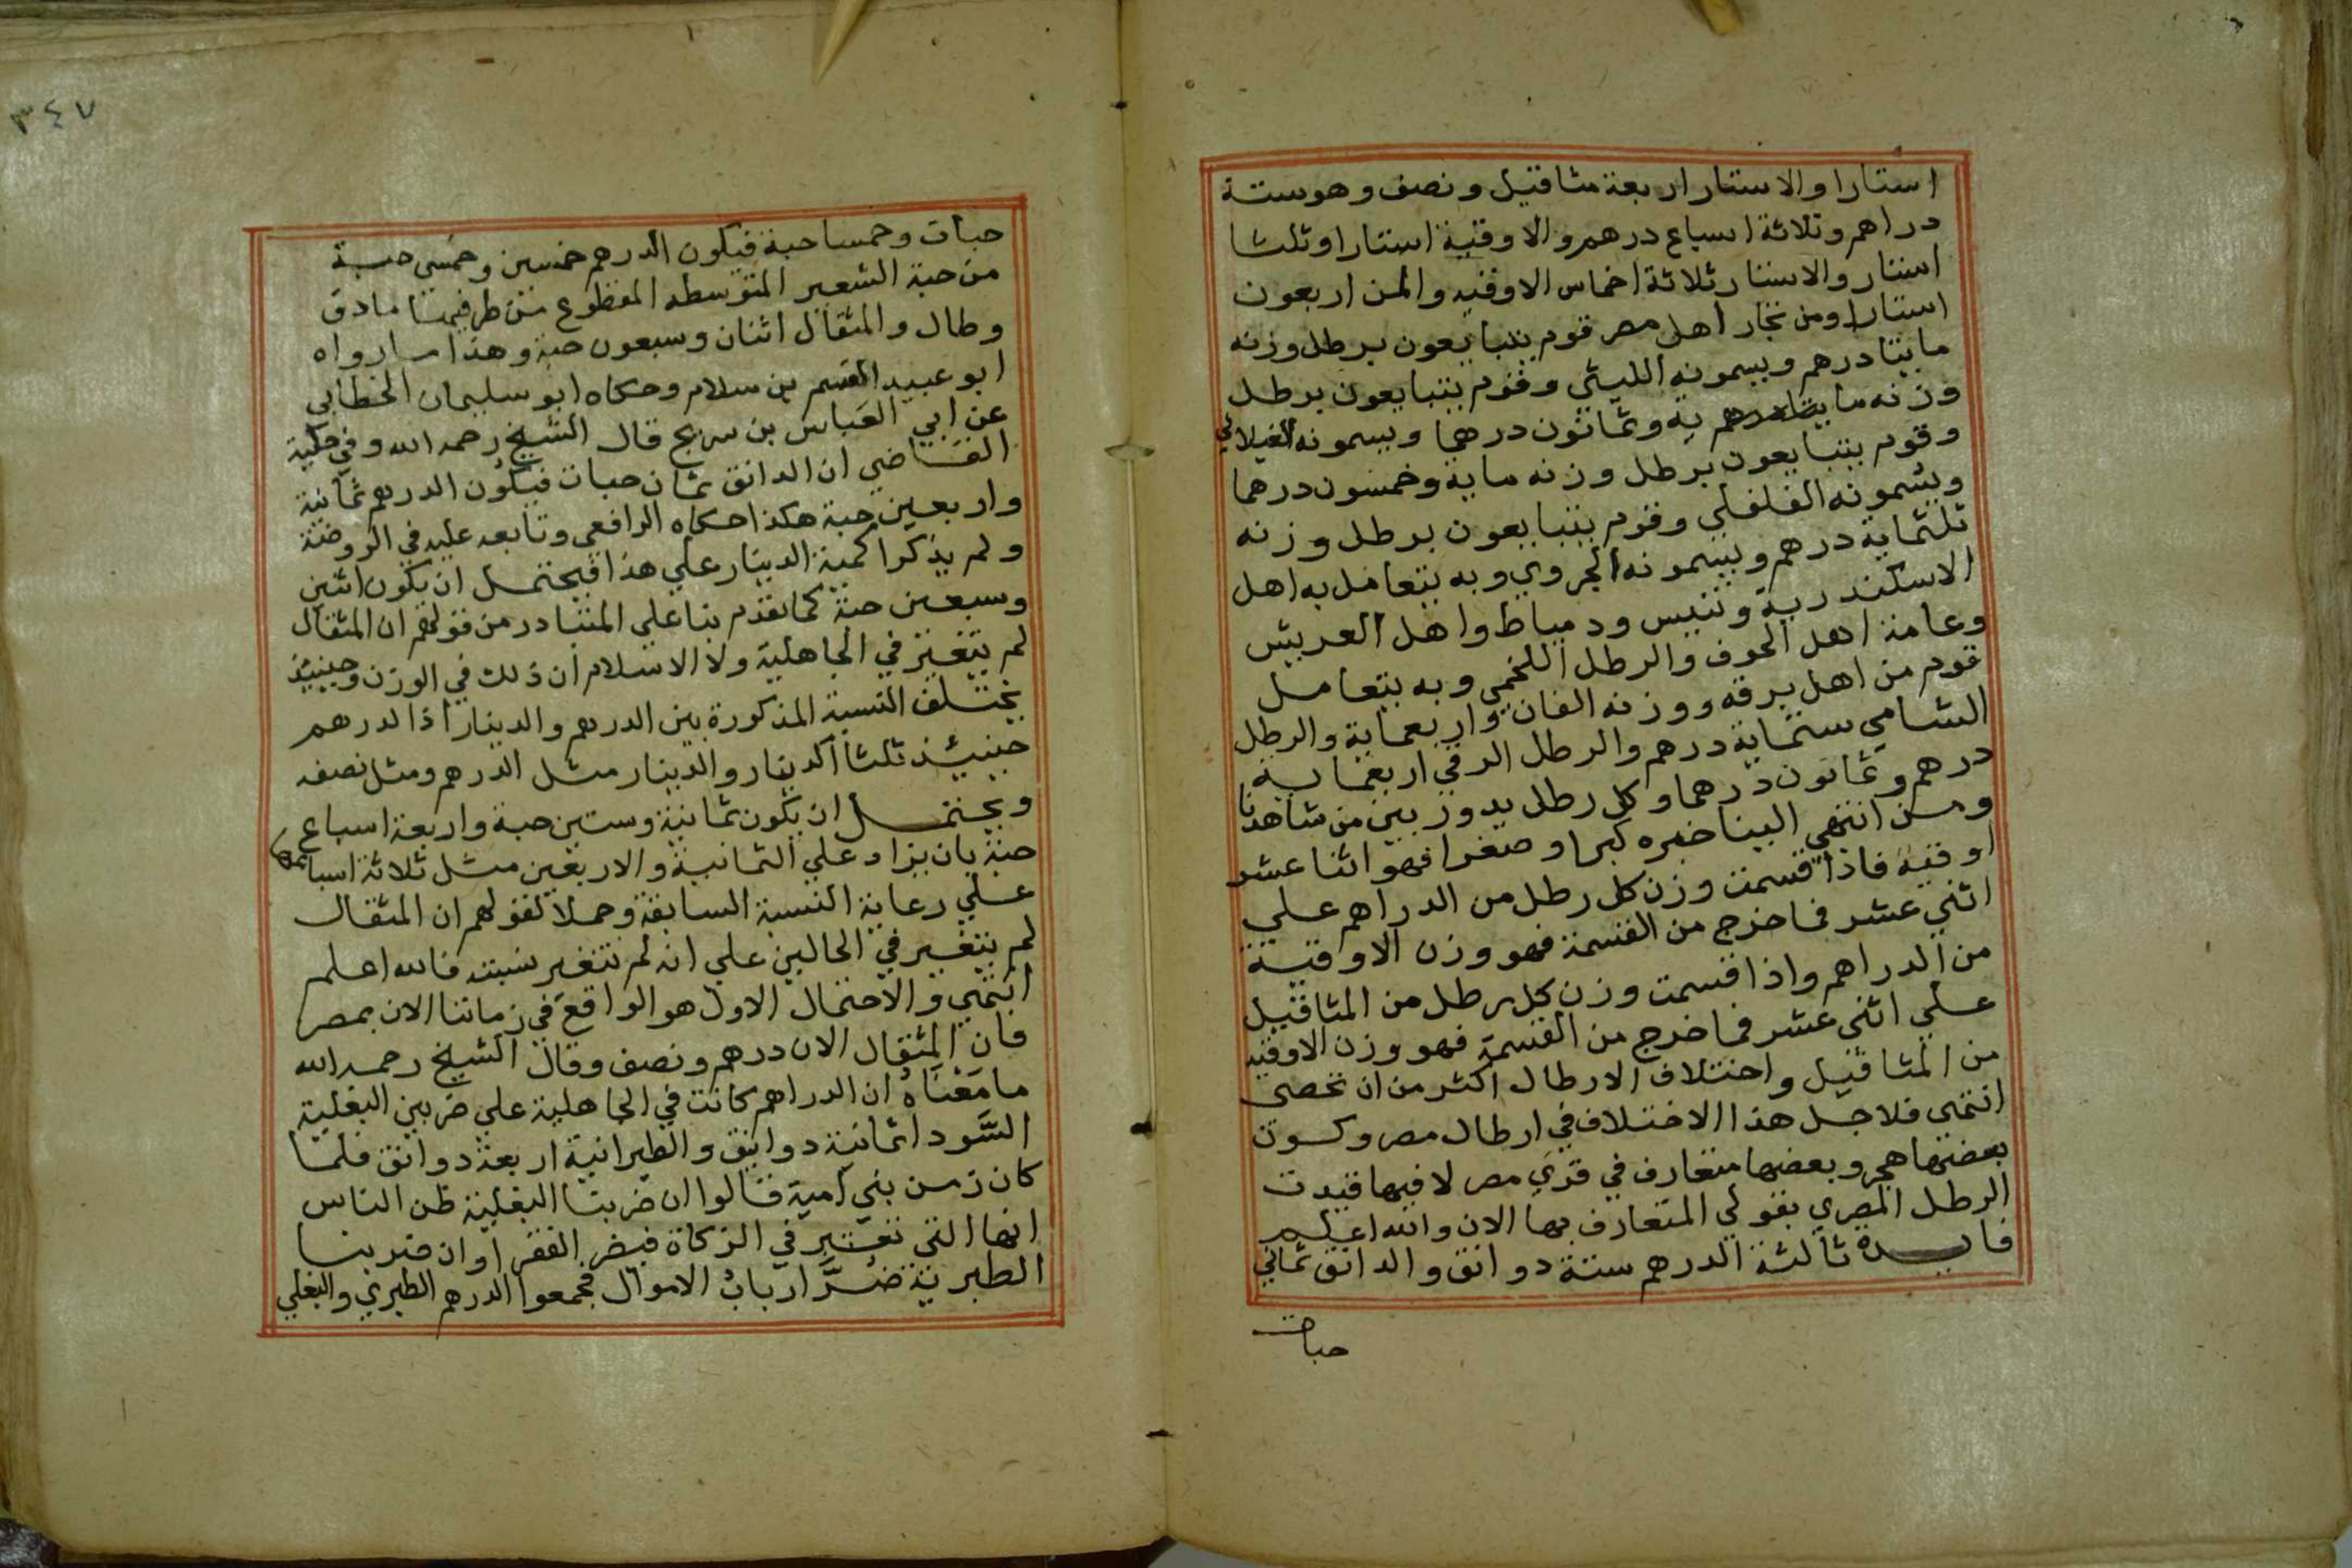 استارا والاستار اربعة مثاقيل ونصف وهوستة
دراهم وثلاثة اسباع درهم والاوقية استارا وثلثا
استار والاستار ثلاثة اخماس الاوقيه والمن اربعون
استارا ومن تجار اهل مصر قوم يتبايعون برطل وزنه
مايتا درهم ويسمونه الليثي وقوم يتبايعون برطل
وزنه مايه وثمانون درهما ويسمونه
وقوم يتبايعون برطل وزنه ماية وخمسون درهما
ويسمونه الفلفلي وقوم يتبايعون برطل وزنه
ثلثماية درهم ويسمونه الجروي وبه يتعامل به اهل
الاسكندرية وتنيس ودمياط واهل العريش
وعامة اهل الحوف والرطل اللخمي وبه يتعامل
قوم من اهل برقه ووزنه الفان واربعماية والرطل
الشامي ستماية درهم والرطل الدقي اربعماية
درهم وثمانون درهما وكل رطل يدور بين من شاهدنا
ومن انتهي الينا خبره كبرا وصغرا فهو اثنا عشر
اوقيه فاذا قسمت وزن كل رطل من الدراهم علي
اثني عشر فما خرج من القسمة فهو وزن الاوقية
من الدراهم واذا قسمت وزن كل رطل من المثاقيل
علي اثني عشر فما خرج من القسمة فهو وزن الاوقيه
من المثاقيل واختلاف الارطال اكثر من ان تحصى
انتهى فلاجل هذا الاختلاف في ارطال مصر وكون
بعضها هجر وبعضها متعارف في قري مصر لا فيها قيدت
الرطل المصري بقولي المتعارف بها الان والله اعلم
فايدة ثالثة الدرهم ستة دوانق والدانق ثماني
حبات
٣٤٧
حبات وخمسا حبة فيكون الدرهم خمسين وخمسي حبة
من حبة الشعير المتوسطه المقطوع من طرفيها مادق
وطال والمثقال اثنان وسبعون حبة وهذا ما رواه
ابو عبيد القسم بن سلام وحكاه ابو سليمان الخطابي
عن ابي العباس بن سريج قال الشيخ رحمه الله وفي حلية
القاضي ان الدانق ثمان حبات فيكون الدرهم ثمانية
واربعين حبة هكذا حكاه الرافعي وتابعه عليه في الروضة
ولم يذكرا كمية الدينار علي هذا فيحتمل ان يكون اثنين
وسبعين حبة كما تقدم بنا علي المتبادر من قولهم ان المثقال
لم يتغير في الجاهلية ولا الاسلام ان ذلك في الوزن وحينيذ
يختلف النسبة المذكورة بين الدرهم والدينار اذ الدرهم
حينيئذ ثلثا الدينار والدينار مثل الدرهم ومثل نصفه
ويحتمل ان يكون ثمانية وستين حبة واربعة اسباع
حبة بان يزاد علي الثمانية والاربعين مثل ثلاثة اسباعها
علي رعاية النسبة السابقة وحملا لقولهم ان المثقال
لم يتغير في الحالين علي انه لم تتغير نسبته فالله اعلم
انتهي والاحتمال الاول هو الواقع في زماننا الان بمصر
فان المثقال الان درهم ونصف وقال الشيخ رحمه الله
ما معناه ان الدراهم كانت في الجاهلية علي ضربين البغلية
السود اثمانية دوانق والطبرانية اربعة دوانق فلما
كان زمن بني امية قالوا ان ضربنا البغلية ظن الناس
انها التي تعتبر في الزكاة فيضر الفقرا وان ضربنا
الطبرية ضر ارباب الاموال فجمعوا الدرهم الطبري والبغلي